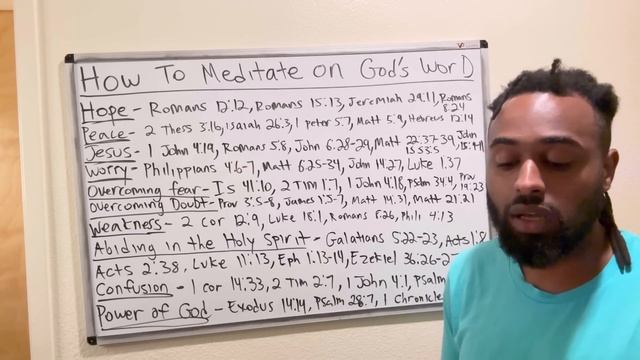 How To Meditate on God's Word
Hope - Romans 12:12, Romans 15:13, Jeremiah 29:11, Romans 8:24
Peace - 2 Thess 3:16, Isaiah 26:3, 1 Peter 5:7, Matt 5:9, Hebrews 12:14
Jesus - 1 John 4:19, Romans 5:8, John 6:28-29, Matt 22:37-39, John
Worry - Philippians 4:6-7, Matt 6:25-34, John 14:27, Luke 1:37
Overcoming fear - Is 41:10, 2 Tim 1:7, 1 John 4:18, Psalm 34:4, Prov 19:23
overcoming Doubt - Prov 3:5-8, James 1:5-7, Matt 14:31, Matt 21:21
Weakness - 2 Cor 12:9, Luke 18:1, Romans 8:26, Phili 4:13
Abiding in the Holy Spirit - Galatians 5:22-23, Acts 1:8
Acts 2:38, Luke 11:13, Eph 1:13-14, Ezekiel 36:26-2
Confusion - 1 cor 14:33, 2 Tim 2:7, 1 John 4:1, Psalm
Power of God - Exodus 14:14, Psalm 28:7, 1 Chronicle